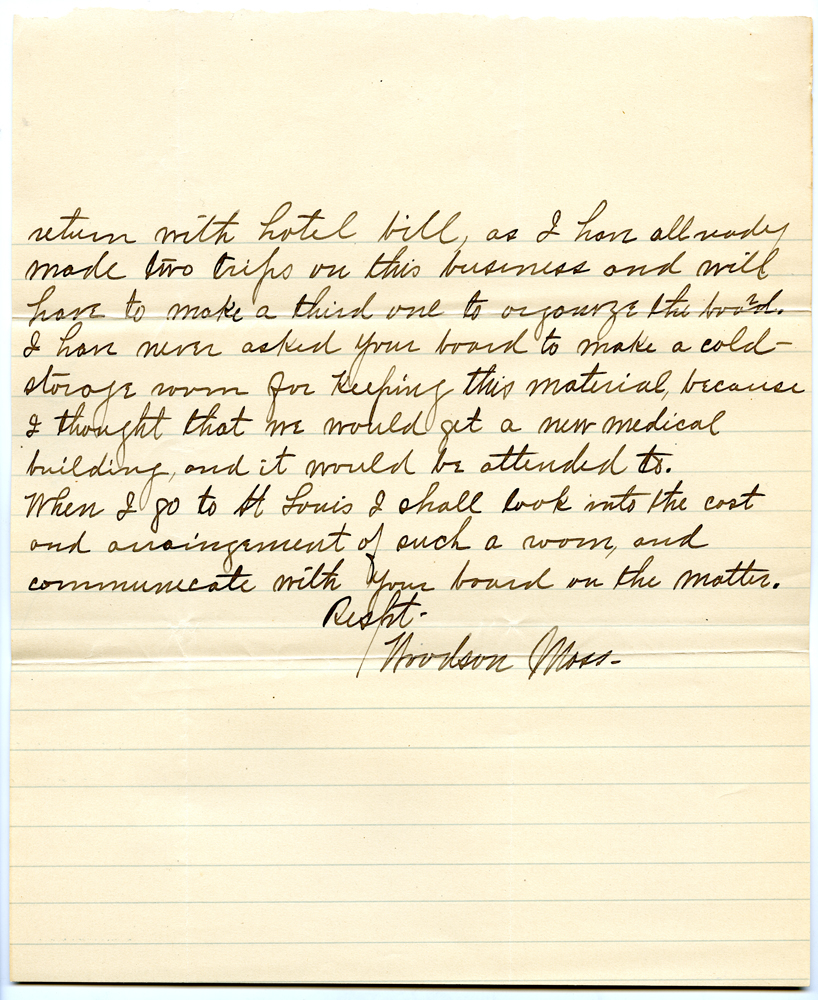 return with hotel bill, as I have allready
made two trips on this business and will
have to make a third one to organize the board.
I have never asked your board to make a cold-
storage room for keeping this material, because
I thought that we would get a new medical
building, and it would be attended to.
When I go to St Louis I shall look into the cost
and arraingement of such a room, and
communicate with your board on the matter.
Respt-
Woodson Moss-